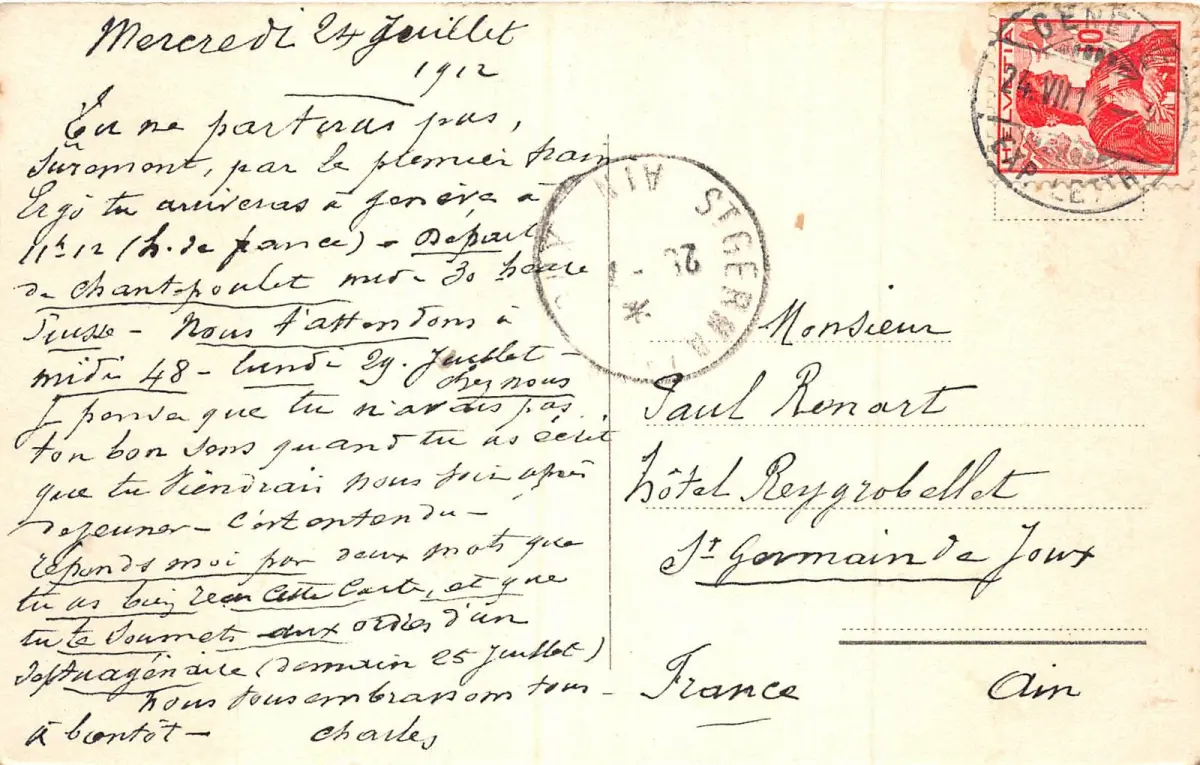 Mercredi 24 Juillet
1912
Tu ne partiras pas,
Sûrement, par le premier train
Ergo tu arriveras à Genève à
11h 12 (h. de france) - Départ
de Chantepoulet midi 30 heure
Suisse - Nous t'attendons à
midi 48 - lundi 29. Juillet -
chez nous
Je pense que tu n'avais pas
ton bon sens quand tu as écrit
que tu viendrais nous voir après
dejeuner - C'est entendu -
réponds moi par deux mots que
tu as bien reçu cette Carte, et que
tu te soumets aux ordres d'un
septuagénaire (demain 25 Juillet)
Nous vous embrassons tous -
à bientôt - Charles
GENÈV
24 VII.1
EXP. LETTR.
HELVETIA
10
ST GERMA
AIN
Monsieur
Paul Renart
hôtel Reygrobellet
St Germain de Joux
France Ain